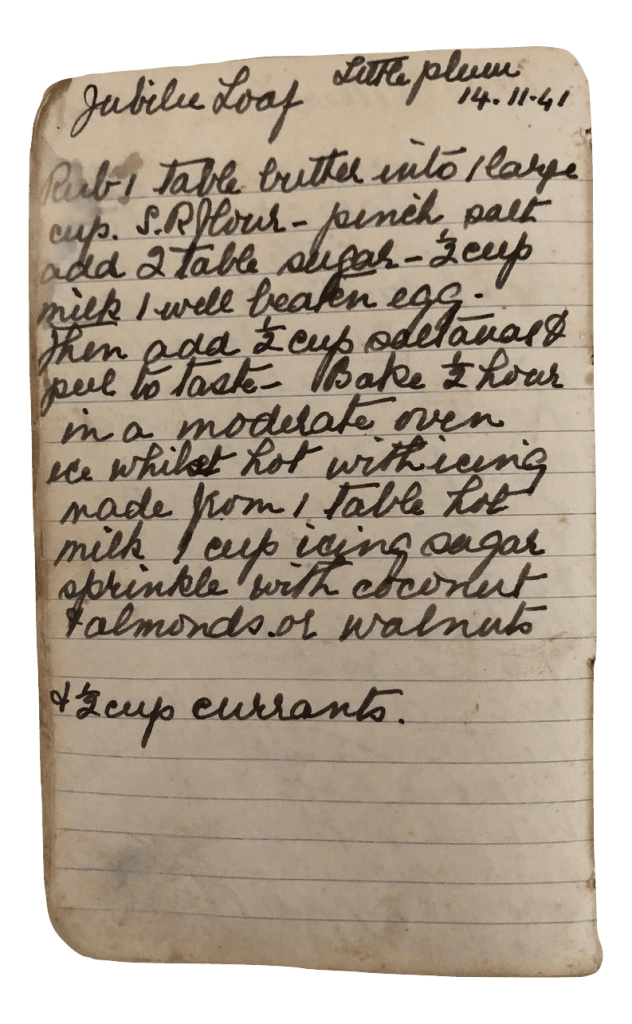 Jubilee Loaf Little plum
14.11.41
Rub 1 table butter into 1 large
cup. S.R flour - pinch salt
add 2 table sugar - ½ cup
milk 1 well beaten egg.
Then add ½ cup saltanas &
peel to taste - Bake ½ hour
in a moderate oven
ice whilst hot with icing
made from 1 table hot
milk 1 cup icing sugar
sprinkle with coconut
& almonds. or walnuts
& ½ cup currants.